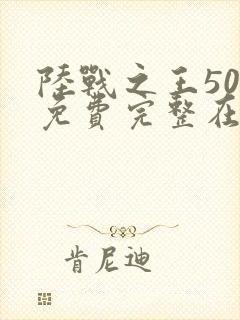 陸戰之王50
免費完整在
肯尼迪